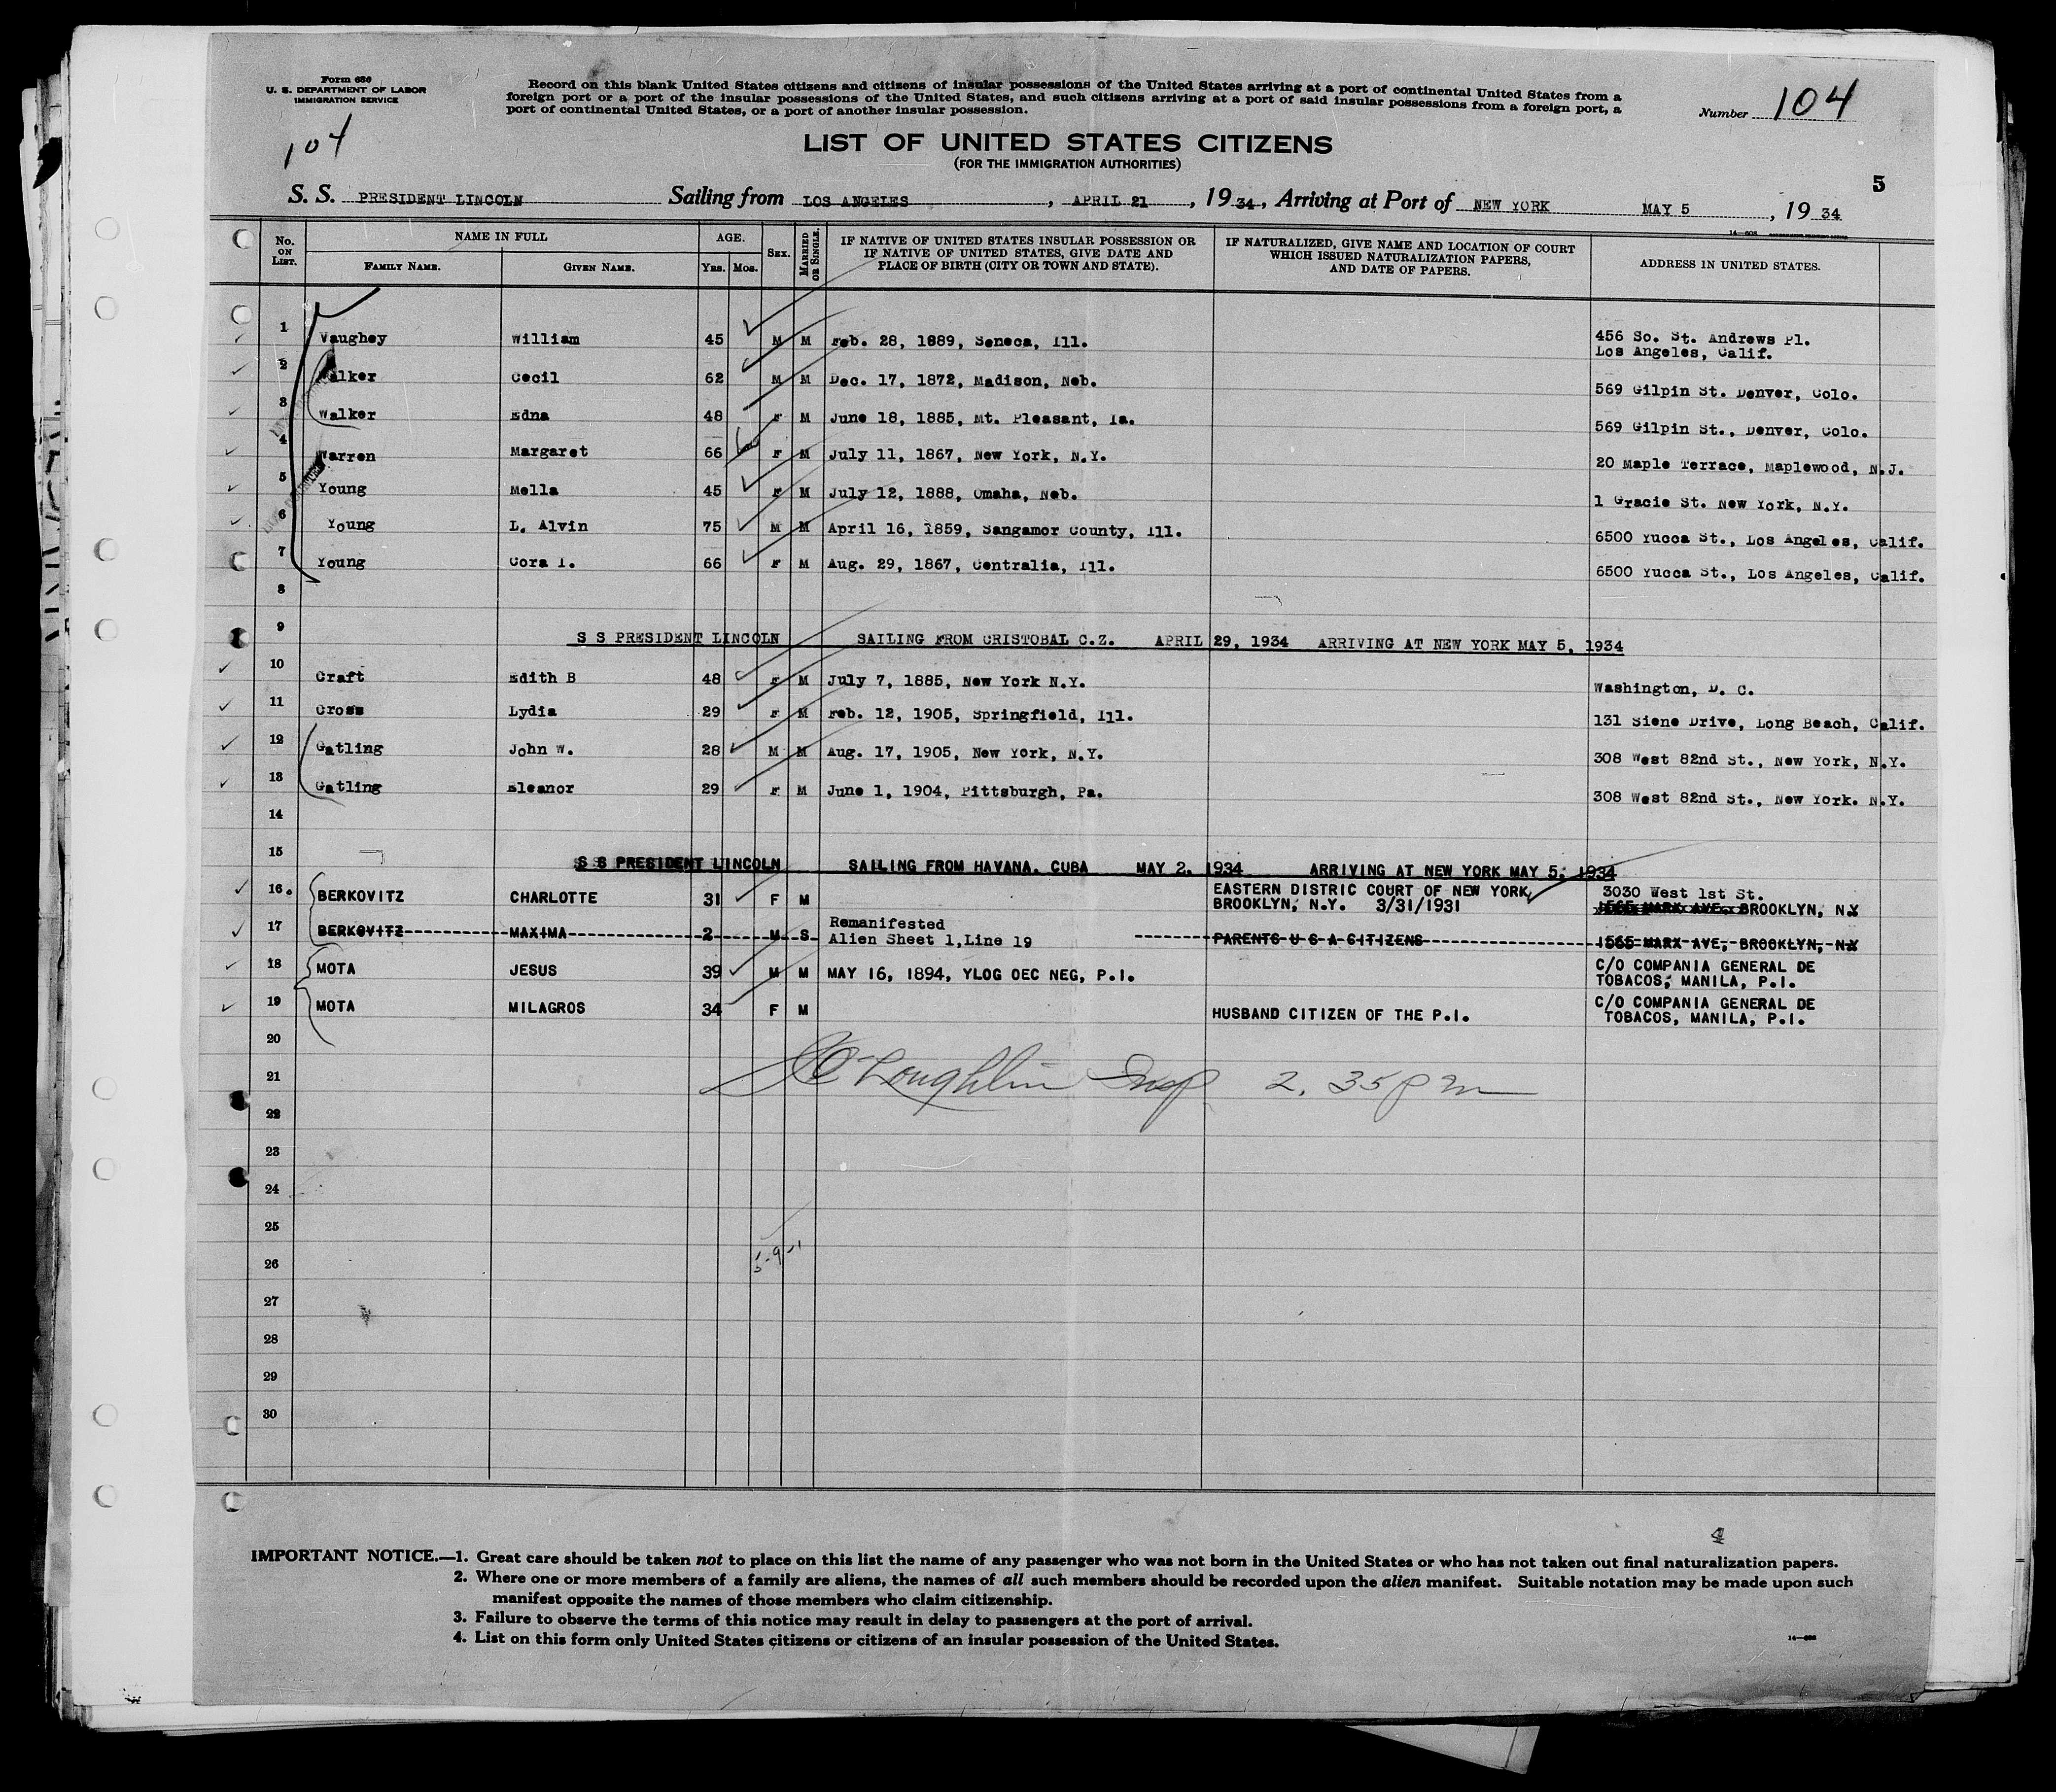 Form 630
U. S. DEPARTMENT OF LABOR
IMMIGRATION SERVICE
Record on this blank United States citizens and citizens of insular possessions of the United States arriving at a port of continental United States from a
foreign port or a port of the insular possessions of the United States, and such citizens arriving at a port of said insular possessions from a foreign port, a
port of continental United States, or a port of another insular possession.
Number 104
104
LIST OF UNITED STATES CITIZENS
(FOR THE IMMIGRATION AUTHORITIES)
5
S. S. PRESIDENT LINCOLN Sailing from LOS ANGELES , APRIL 21 , 19 34 , Arriving at Port of NEW YORK MAY 5 , 19 34
No. ON LIST. NAME IN FULL FAMILY NAME. GIVEN NAME. AGE. YRS. MOS. SEX. MARRIED OR SINGLE. IF NATIVE OF UNITED STATES INSULAR POSSESSION OR IF NATIVE OF UNITED STATES, GIVE DATE AND PLACE OF BIRTH (CITY OR TOWN AND STATE). IF NATURALIZED, GIVE NAME AND LOCATION OF COURT WHICH ISSUED NATURALIZATION PAPERS, AND DATE OF PAPERS. ADDRESS IN UNITED STATES.
1 Vaughey William 45 M M Feb. 28, 1889, Seneca, Ill. 456 So. St. Andrews Pl.
Los Angeles, Calif.
2 Walker Cecil 62 M M Dec. 17, 1872, Madison, Neb. 569 Gilpin St. Denver, Colo.
3 Walker Edna 48 F M June 18, 1885, Mt. Pleasant, Ia. 569 Gilpin St., Denver, Colo.
4 Warren Margaret 66 F M July 11, 1867, New York, N.Y. 20 Maple Terrace, Maplewood, N.J.
5 Young Mella 45 F M July 12, 1888, Omaha, Neb. 1 Gracie St. New York, N.Y.
6 Young L. Alvin 75 M M April 16, 1859, Sangamor County, Ill. 6500 Yucca St., Los Angeles, Calif.
7 Young Cora I. 66 F M Aug. 29, 1867, Centralia, Ill. 6500 Yucca St., Los Angeles, Calif.
8
9 S S PRESIDENT LINCOLN SAILING FROM CRISTOBAL C.Z. APRIL 29, 1934 ARRIVING AT NEW YORK MAY 5, 1934
10 Craft Edith B 48 F M July 7, 1885, New York N.Y. Washington, D. C.
11 Cross Lydia 29 F M Feb. 12, 1905, Springfield, Ill. 131 Siene Drive, Long Beach, Calif.
12 Gatling John W. 28 M M Aug. 17, 1905, New York, N.Y. 308 West 82nd St., New York, N.Y.
13 Gatling Eleanor 29 F M June 1, 1904, Pittsburgh, Pa. 308 West 82nd St., New York. N.Y.
14
15 S S PRESIDENT LINCOLN SAILING FROM HAVANA. CUBA MAY 2, 1934 ARRIVING AT NEW YORK MAY 5, 1934
16. BERKOVITZ CHARLOTTE 31 F M EASTERN DISTRIC COURT OF NEW YORK 3030 West 1st St.
BROOKLYN, N.Y. 3/31/1931 1565 MARX AVE. BROOKLYN, NY
17 BERKOVITZ MAXIMA 2 M S Remanifested
Alien Sheet 1,Line 19 PARENTS U S A CITIZENS 1565 MARX AVE, BROOKLYN, NY
18 MOTA JESUS 39 M M MAY 16, 1894, YLOG OEC NEG, P.I. C/O COMPANIA GENERAL DE
TOBACOS, MANILA, P.I.
19 MOTA MILAGROS 34 F M HUSBAND CITIZEN OF THE P.I. C/O COMPANIA GENERAL DE
TOBACOS, MANILA, P.I.
20
21 O'Loughlin Insp 2.35 pm
22
23
24
25
26
27
28
29
30
4
IMPORTANT NOTICE.—1. Great care should be taken not to place on this list the name of any passenger who was not born in the United States or who has not taken out final naturalization papers.
2. Where one or more members of a family are aliens, the names of all such members should be recorded upon the alien manifest. Suitable notation may be made upon such
manifest opposite the names of those members who claim citizenship.
3. Failure to observe the terms of this notice may result in delay to passengers at the port of arrival.
4. List on this form only United States citizens or citizens of an insular possession of the United States.